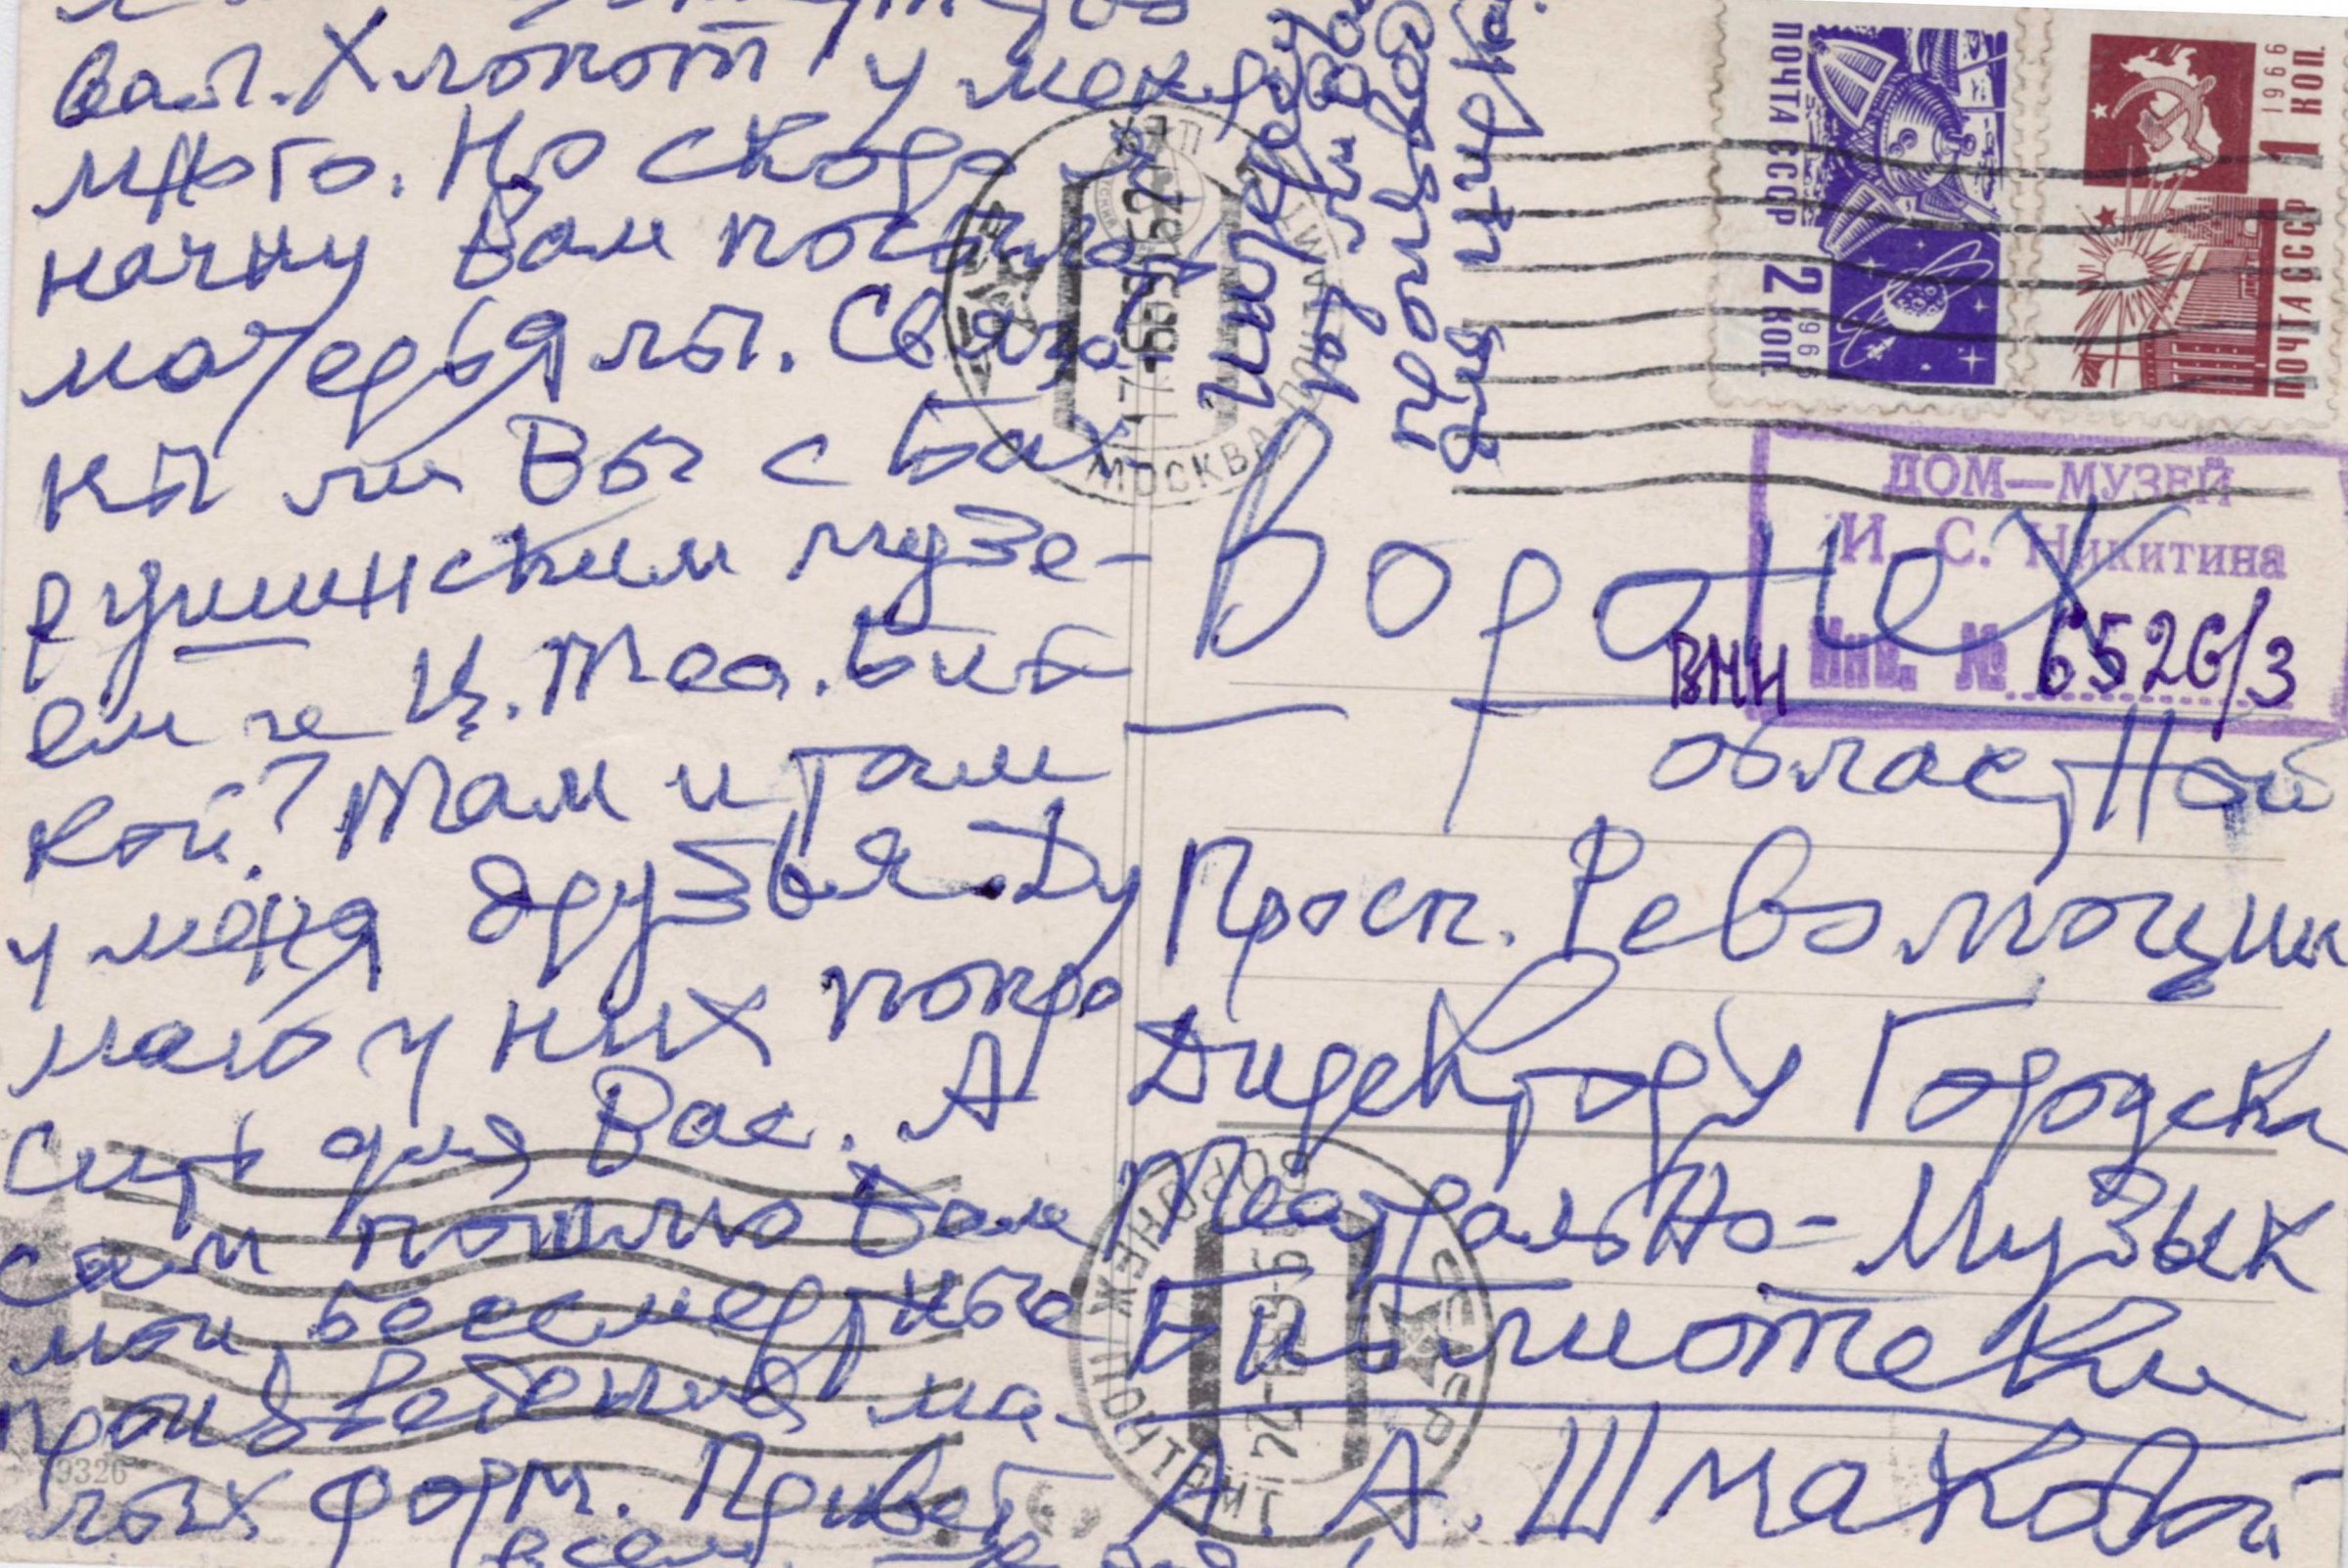 вал. Хлопот у меня
много. Но скоро я
начну Вам посылать
матерьялы. Связа
ны ли Вы с Бах
рушинским музе-
ем и Ц. Теа. Биб
кой? Там и там
у меня друзья. Ду
маю у них попро
сить для Вас. А
сам пошлю Вам
мои бессмертные
произведения ма-
лых форм. Привет
всем.
ПОЧТА СССР 2 КОП. 1966
1966 1 КОП. ПОЧТА СССР
МОСКВА
ДОМ—МУЗЕЙ
И. С. Никитина
ВМН Инв. № 6526/3
Воронеж
областной
Просп. Революции
Директору Городск
Театрально-Музык
Библиотеки
А. А. Шмаковой
ВОРОНЕЖ ПОЧТАМТ
9326